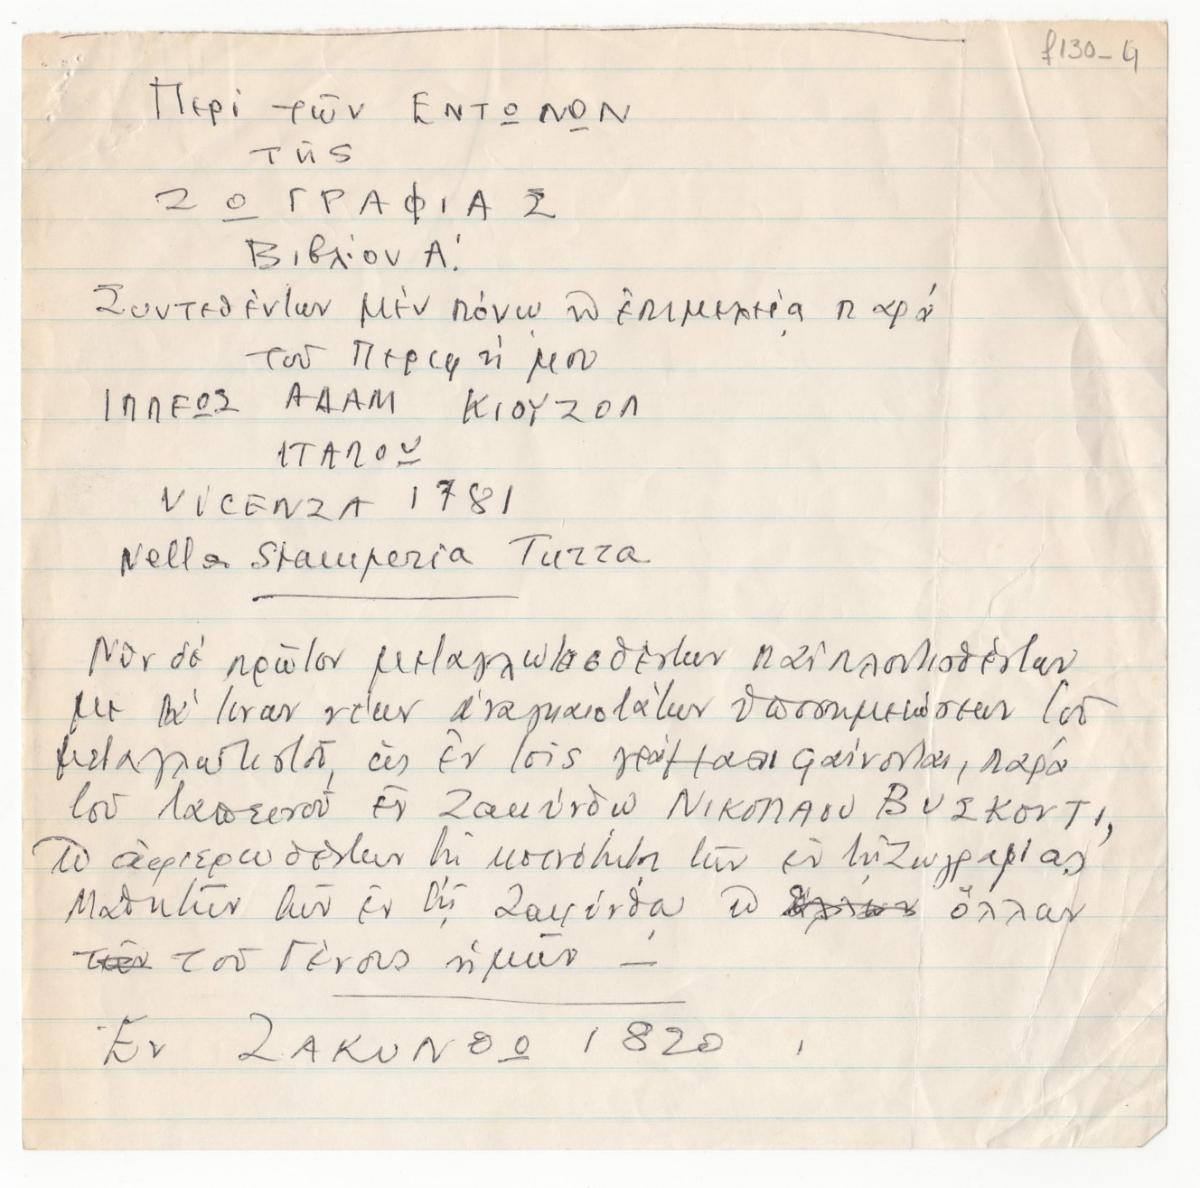 f130-4
Περί τῶν ΕΝΤΩΝΩΝ
τῆς
ΖΩΓΡΑΦΙΑΣ
Βιβλίον Α΄.
Συντεθέντων μέν πόνω ϗ ἐπιμελείᾳ παρά
τοῦ Περιφήμου
ΙΠΠΕΩΣ ΑΔΑΜ ΚΙΟΥΖΟΛ
ΙΤΑΛΟΥ
VICENZA 1781
Nella Stamperia Turra
Νῦν δέ πρῶτον μεταγλωττισθέντων καί πλουτισθέντων
με τινων νέων ἀναγκαιοτάτων ὑποσημειώσεων τοῦ
μεταγλωττιστοῦ, ὡς ἐν τοῖς γράμμασι φαίνονται, παρά
τοῦ ταπεινοῦ ἐν Ζακύνθω ΝΙΚΟΛΑΟΥ ΒΥΣΚΟΝΤΙ,
ϗ ἀφιερωθέντων τῇ κοινότητι τῶν ἐν τῇ Ζωγραφίας
Μαθητῶν τῶν ἐν τῇ Ζακύνθῳ ϗ ὅλλων
τοῦ Γένους ἡμῶν —
Ἐν ΖΑΚΥΝΘΩ 1820